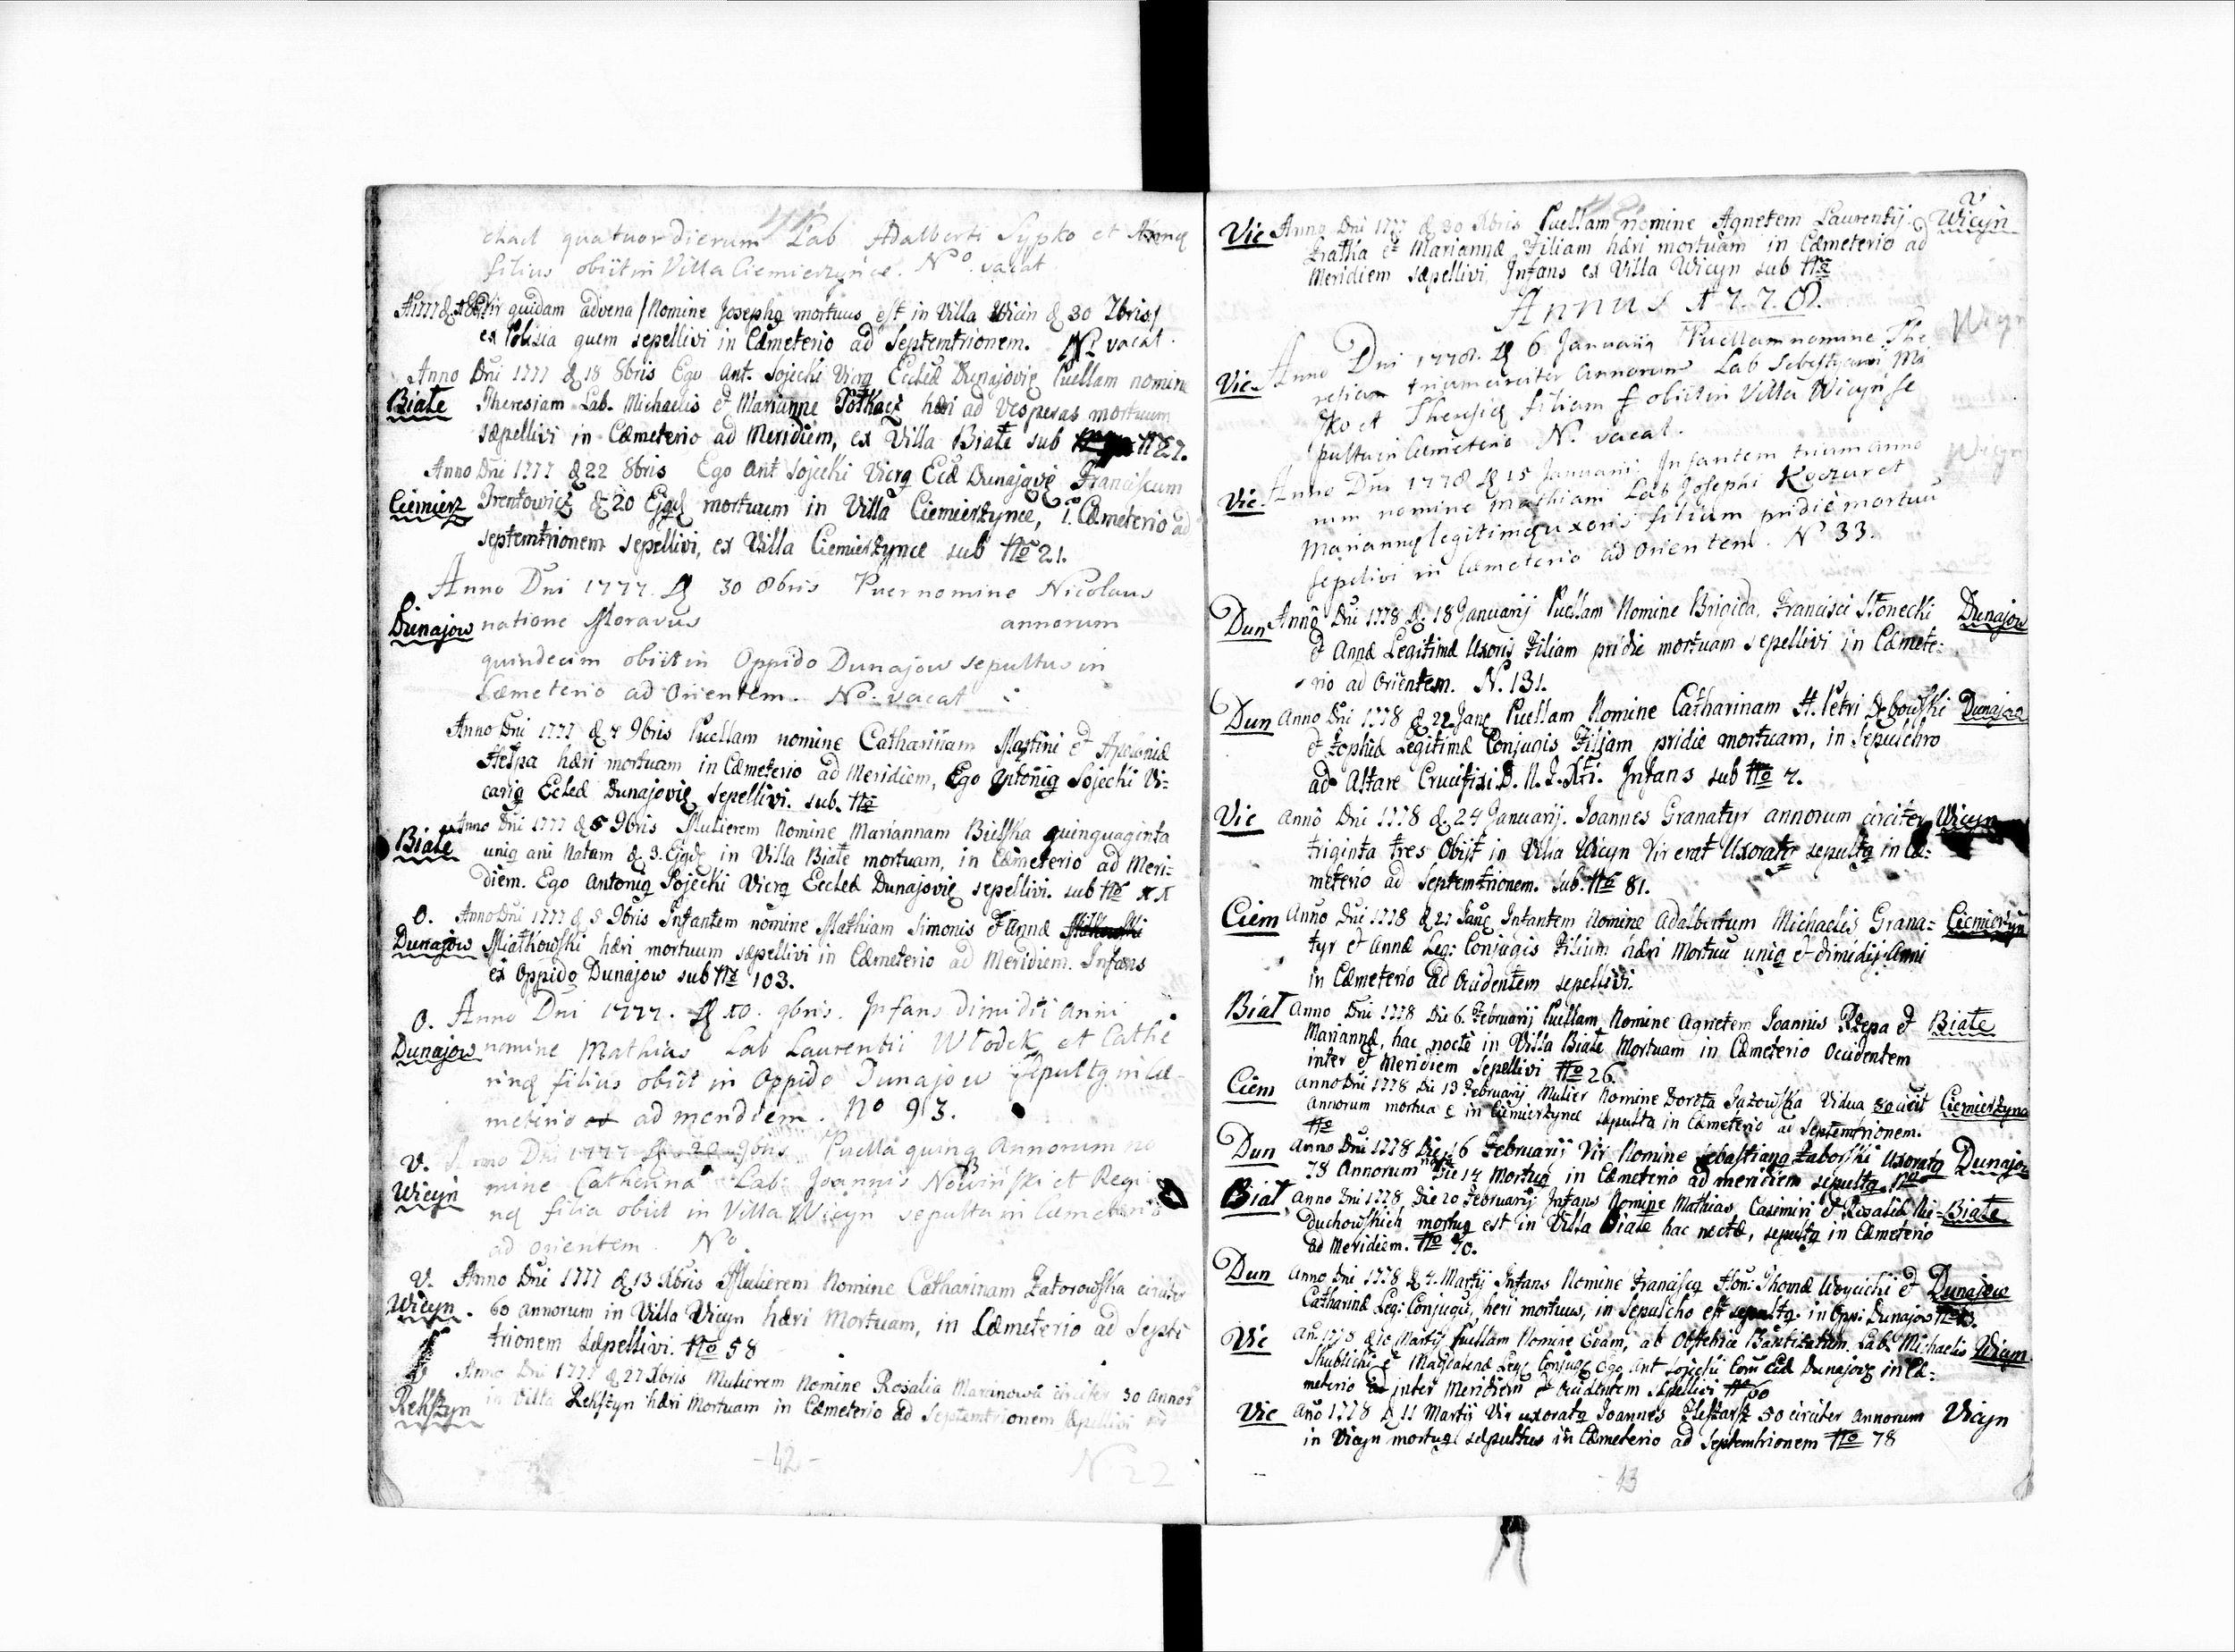 chael quatuor dierum Lab Adalberti Sypko et Annę
filius obiit in Villa Ciemierzyńce. No. vacat
Vir quidam advena / Nomine Josephꝯ mortuus est in Villa Wicin d. 30 7bris /
ex Polesia quem sepellivi in Cæmeterio ad Septemtrionem. No vacat.
Anno Dni 1777 d. 18 8bris Ego Ant. Sojecki Vicrꝯ Eccleæ Dunajovię Puellam nomine
Białe Theresiam Lab. Michaelis et Marianne Totkacz hæri ad Vesperas mortuam
sæpellivi in Cæmeterio ad Meridiem, ex Villa Białe sub No 27.
Anno Dni 1777 d. 22 8bris Ego Ant Sojecki Vicrꝯ Ecæ Dunajovię Franciscum
Ciemierz Trentowicz d. 20 Ejꝯd mortuum in Villa Ciemierzynce, i. Cæmeterio ad
septemtrionem sepellivi, ex Villa Ciemierzynce sub No 21.
Anno Dni 1777. d. 30 8bris Puer nomine Nicolaus
Dunajow natione Moravus annorum
quindecim obiit in Oppido Dunajow sepultus in
Cæmeterio ad Orientem. No. vacat
Anno Dni 1777 d. 7 9bris Puellam nomine Catharinam Martini et Apoloniæ
hæri mortuam in Cæmeterio ad Meridiem, Ego Antoniꝯ Sojecki Vi-
cariꝯ Ecleæ Dunajovię sepellivi. sub. No
Anno Dni 1777 d. 5 9bris Mulierem Nomine Mariannam Bielska quinquaginta
Białe uniꝯ ani Natam d. 3. Ejꝯd in Villa Białe mortuam, in Cæmeterio ad Meri-
diem. Ego Antoniꝯ Sojecki Vicrꝯ Eccleæ Dunajovię sepellivi. sub No 11
O. Anno Dni 1777 d. 5 9bris Infantem nomine Mathiam Simonis et Annæ
Dunajow Miałkowski hæri mortuum sæpellivi in Cæmeterio ad Meridiem. Infans
ex Oppido Dunajow sub No 103.
O. Anno Dni 1777. d. 10. 9bris. Infans dimidii anni
Dunajow nomine Mathias Lab Laurentii Włodek et Cathe
rinę filius obiit in Oppido Dunajow sepultꝯ in Cæ-
meterio ad meridiem. No 93.
V. Anno Dni 1777 d. 20 9bris Puella quinꝗ Annorum no
Wicyn mine Catherina Lab: Joannis Nowiński et Regi
nę filia obiit in Villa Wicyn sepulta in Cæmeterio
ad orientem. No
V. Anno Dni 1777 d. 13 Xbris Mulierem Nomine Catharinam Zatorowska circiter
Wicyn. 60 annorum in Villa Vicyn hæri Mortuam, in Cæmeterio ad Septe
trionem sæpellivi. No 58
Anno Dni 1777 d. 27 Xbris Mulierem Nomine Rosalia Marinowa circiter 30 annor
Rekszyn in Villa Rekszyn hæri Mortuam in Cæmeterio ad Septemtrionem sæpellivi
- 42 - N 22
Vic Anno Dni 1777 d. 30 Xbris Puellam nomine Agnetem Laurentij V Wicyn
Fratha et Mariannæ Filiam hæri mortuam in Cæmeterio ad
Meridiem sæpellivi, Infans ex Villa Wicyn sub No
Annus 1778.
Vic. Anno Dni 1778. d. 6 Januarii Puellam nomine The Wicyn
resiam trium circiter annorum Lab Sebestyani Ma
tko et Theresię filiam obiit in Villa Wicyn se
pulta in Cæmeterio No. vacat.
Vic. Anno Dni 1778 d. 15 Januarii Infantem trium anno Wicyn
rum nomine Mathiam Lab Josephi Koczur et
Mariannę legitimę uxoris filium pridie mortuũ
sepelivi in Cæmeterio ad Orientem. No 33.
Dun Anno Dni 1778 d. 18 Januarij Puellam Nomine Brigida, Francisci Słonecki Dunajow
et Annæ Legitimæ Uxoris Filiam pridie mortuam sepellivi in Cæmete-
rio ad Orientem. N. 131.
Dun Anno Dni 1778 d. 22 Janę Puellam Nomine Catharinam H. Petri Dębowski Dunajow
et Zophiæ Legitimæ Conjugis Filiam pridie mortuam, in Sepulchro
ad Altare Crucifixi D. N. J. Xti. Infans sub No 7.
Vic Anno Dni 1778 d. 24 Januarij. Joannes Granatyr annorum circiter Wicyn
triginta tres Obijt in Villa Wicyn Vir erat Uxoratꝯ sepultꝯ in Cæ-
meterio ad Septemtrionem. sub. No 81.
Ciem Anno Dni 1778 d. 27 Janę Infantem Nomine Adalbertum Michaelis Grana- Ciemierzyn
tyr et Annæ Leg: Conjugis Filium hæri Mortuũ uniꝯ et dimidij Anni
in Cæmeterio ad Ocidentem sepellivi.
Biał Anno Dni 1778 Die 6. Februarij Puellam Nomine Agnetem Joannis Rzepa et Białe
Mariannæ, hac nocte in Villa Białe Mortuam in Cæmeterio Ocidentem
inter et Meridiem Sepellivi No 26.
Ciem Anno Dni 1778 Die 13 Februarij Mulier Nomine Dorota Jażowska Vidua 80 circit Ciemierzyna
Annorum mortua e in Ciemierzynce sepulta in Cæmeterio ad Septemtrionem.
No
Dun Anno Dni 1778 Die 16 Februarij Vir Nomine Sebastianꝯ Zaborski Uxoratꝯ Dunajow
78 Annorum Die 14 Mortuꝯ in Cæmeterio ad meridiem sepultꝯ No
Biał Anno Dni 1778 Die 20 Februarij Infans Nomine Mathias, Casimiri et Rosaliæ Nie- Białe
duchowskich mortuꝯ est in Villa Białe hac nocte, sepultꝯ in Cæmeterio
ad Meridiem. No 70.
Dun Anno Dni 1778 d. 4. Martij Infans Nomine Franciscꝯ Hon: Thomæ Woycicki et Dunajow
Catharinæ Leg: Conjugũ, heri mortuus, in sepulcho est sepultꝯ. in Opp: Dunajow No 13.
Vic An 1778 d. 10 Martij Puellam Nomine Evam, ab Obstetrice Baptizatam, Lab. Michaelis Wicyn
Skublicki et Magdalenæ Legę Conjugę Ego Ant Sojecki Com Ecæ Dunajovię in Cæ-
meterio inter Meridiem et Ocidentem sæpellivi No 60
Vic Ano 1778 d. 11 Martij Vir uxoratꝯ Joannes 50 circiter annorum Vicyn
in Vicyn mortuꝯ sæpultus in Cæmeterio ad Septemtrionem No 78